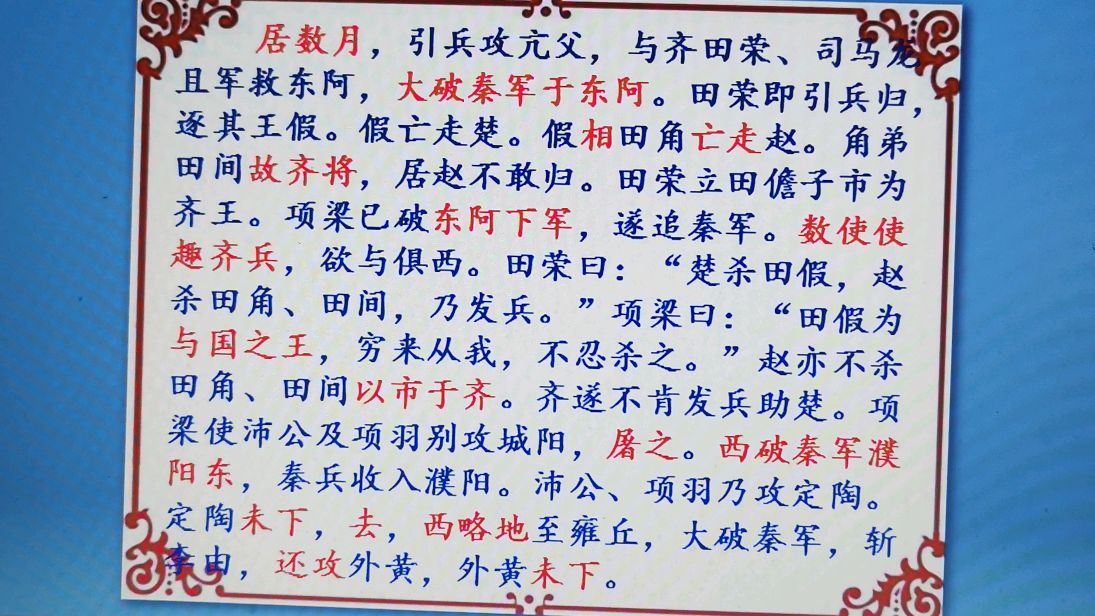 居数月，引兵攻亢父，与齐田荣、司马龙
且军救东阿，大破秦军于东阿。田荣即引兵归，
逐其王假。假亡走楚。假相田角亡走赵。角弟
田间故齐将，居赵不敢归。田荣立田儋子市为
齐王。项梁已破东阿下军，遂追秦军。数使使
趣齐兵，欲与俱西。田荣曰：“楚杀田假，赵
杀田角、田间，乃发兵。”项梁曰：“田假为
与国之王，穷来从我，不忍杀之。”赵亦不杀
田角、田间以市于齐。齐遂不肯发兵助楚。项
梁使沛公及项羽别攻城阳，屠之。西破秦军濮
阳东，秦兵收入濮阳。沛公、项羽乃攻定陶。
定陶未下，去，西略地至雍丘，大破秦军，斩
李由，还攻外黄，外黄未下。